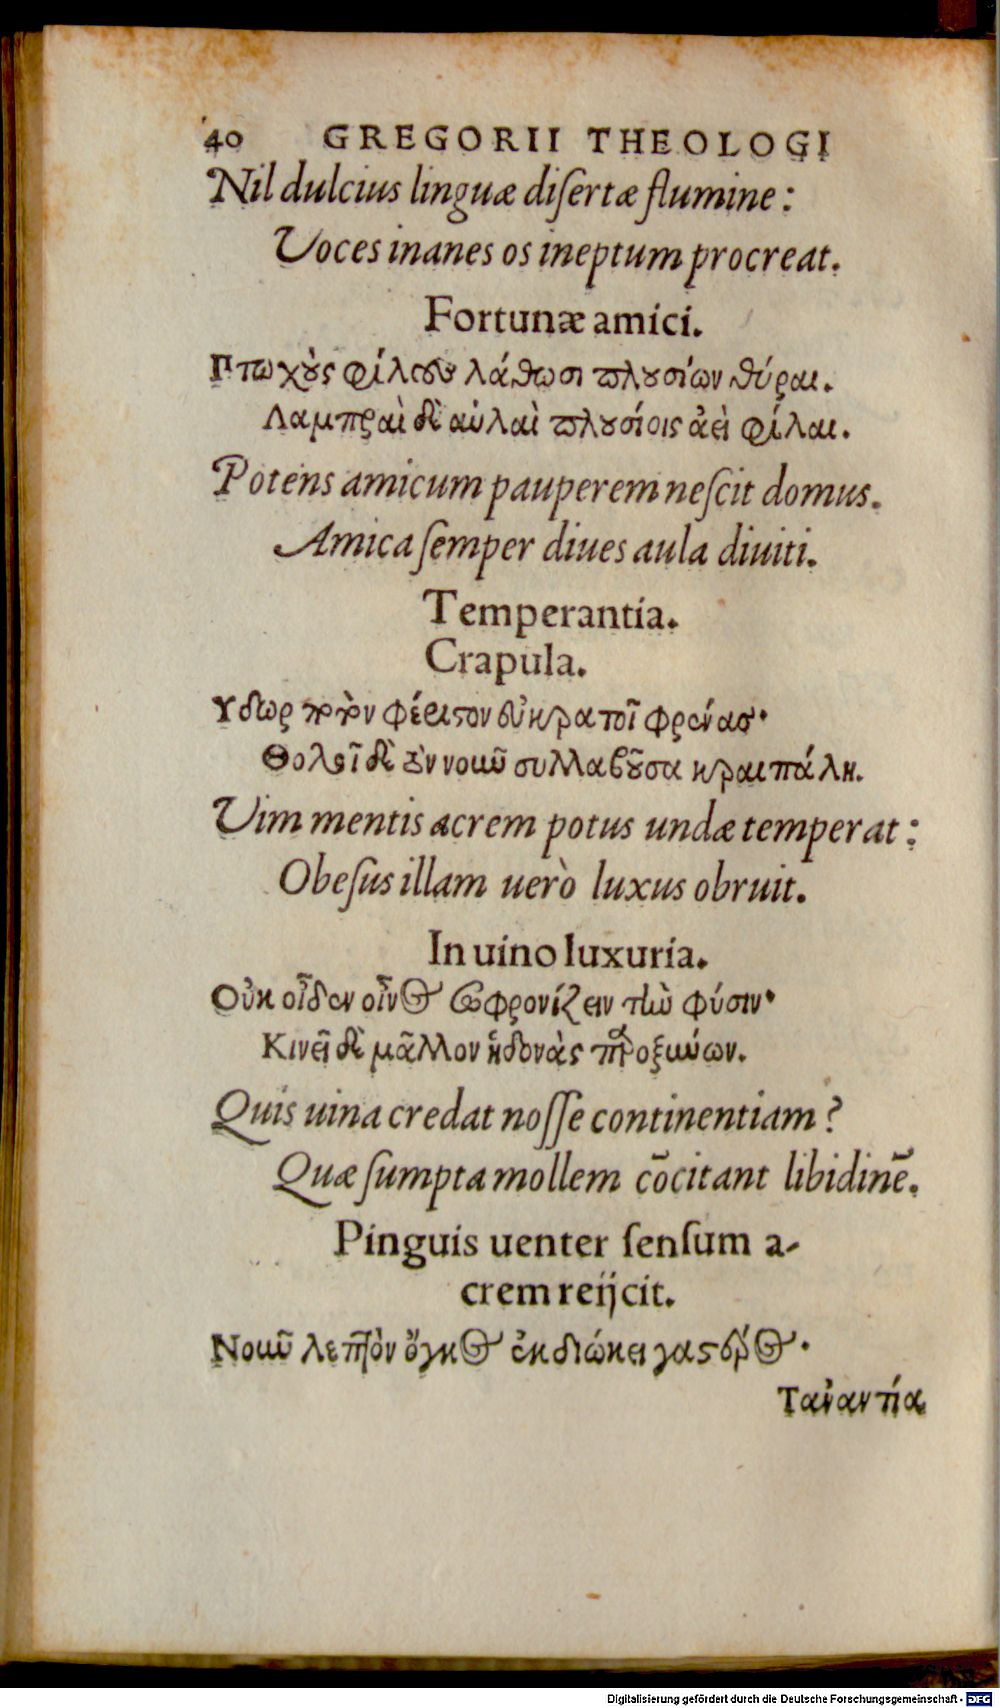 40 GREGORII THEOLOGI
Nil dulcius linguæ disertæ flumine:
Voces inanes os ineptum procreat.
Fortunæ amici.
Πτωχοὺς φίλους λάθωσι πλουσίων θύραι.
Λαμπραὶ δὲ αὐλαὶ πλουσίοις ἀεὶ φίλαι.
Potens amicum pauperem nescit domus.
Amica semper diues aula diuiti.
Temperantia.
Crapula.
Υδωρ ποτὸν φέριστον εὐκρατοῖ φρένας·
Θολεῖ δὲ τὸν νοῦν συλλαβοῦσα κραιπάλη.
Vim mentis acrem potus undæ temperat:
Obesus illam uerò luxus obruit.
In uino luxuria.
Οὐκ οἶδεν οἶνος σωφρονίζειν τὴν φύσιν·
Κινεῖ δὲ μᾶλλον ἡδονὰς
Quis uina credat nosse continentiam?
Quæ sumpta mollem cōcitant libidinē.
Pinguis uenter sensum a-
crem reijcit.
Νοῦν λεπτὸν ὄγκος ἐκδιώκει γαστρός.
Τἀναντία
Digitalisierung gefördert durch die Deutsche Forschungsgemeinschaft - DFG